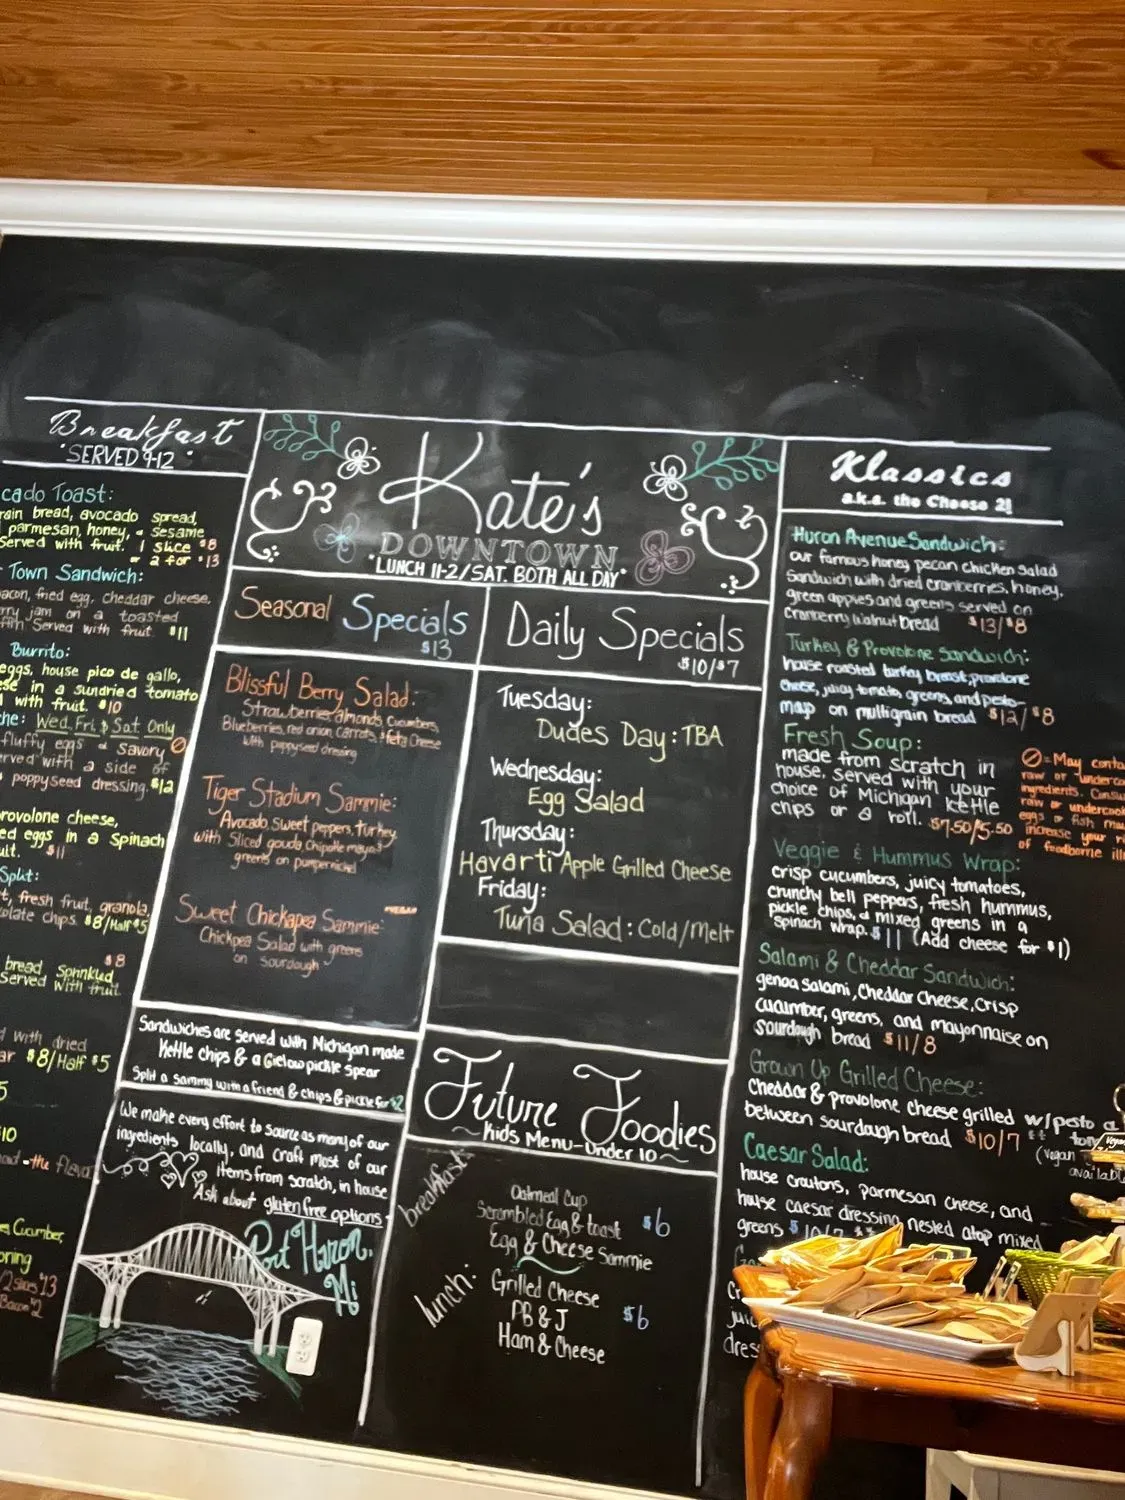 Breakfast
SERVED 9-12
cado Toast:
rain bread, avocado spread,
parmesan, honey, & sesame
Served with fruit. 1 slice $8
or 2 for $13
Town Sandwich:
acon, fried egg, cheddar cheese,
rry jam on a toasted
Served with fruit $11
Burrito:
eggs, house pico de gallo,
ese in a sundried tomato
with fruit. $10
che: Wed, Fri, & Sat. Only
fluffy eggs & savory
erved with a side of
poppyseed dressing. $12
rovolone cheese,
ed eggs in a Spinach
uit. $11
Split:
t, fresh fruit, granola,
olate chips. $8/Half $5
$8
bread, Sprinkled
Served with fruit.
d with dried
ar $8/Half $5
5
$10
Cucumber,
oning
2 Slices $13
Bacon $2
Kate's
DOWNTOWN
LUNCH 11-2/SAT. BOTH ALL DAY
Seasonal Specials
$13
Blissful Berry Salad:
Strawberries, almonds, Cucumbers,
Blueberries, red onion, Carrots, & feta Cheese
with poppyseed dressing
Tiger Stadium Sammie:
Avocado, Sweet peppers, turkey
with Sliced gouda, Chipotle mayo &
greens on pumpernickel
Sweet Chickapea Sammie:
Chickpea Salad with greens
on Sourdough
Sandwiches are served with Michigan made
Kettle chips & a Gielow pickle spear
Split a sammy with a friend & chips & pickle for $2
We make every effort to source as many of our
ingredients locally, and craft most of our
items from scratch, in house
Ask about gluten free options
Port Huron,
Mi
Daily Specials
$10/$7
Tuesday:
Dudes Day: TBA
Wednesday:
Egg Salad
Thursday:
Havarti Apple Grilled Cheese
Friday:
Tuna Salad: Cold/Melt
Future Foodies
~ Kids Menu-Under 10 ~
breakfast:
Oatmeal Cup
Scrambled Egg & toast $6
Egg & Cheese Sammie
lunch:
Grilled Cheese
PB & J $6
Ham & Cheese
Klassics
a.k.a. the Cheese 2!
Huron Avenue Sandwich:
our famous honey pecan chicken salad
Sandwich with dried cranberries, honey,
green apples and greens served on
Cranberry walnut bread $13/$8
Turkey & Provolone Sandwich:
house roasted turkey breast, provolone
cheese, juicy tomato, greens, and pesto-
mayo on multigrain bread $12/$8
Fresh Soup:
made from scratch in
house, served with your
choice of Michigan kettle
chips or a roll. $7.50/5.50
= May conta
raw or underco
ingredients. Consu
raw or undercook
eggs or fish may
increase your ri
of foodborne ill
Veggie & Hummus Wrap:
crisp cucumbers, juicy tomatoes,
crunchy bell peppers, fresh hummus,
pickle chips, & mixed greens in a
spinach wrap. $11 (Add cheese for $1)
Salami & Cheddar Sandwich:
genoa salami, Cheddar Cheese, crisp
cucumber, greens, and mayonnaise on
sourdough bread $11/8
Grown Up Grilled Cheese:
Cheddar & provolone cheese grilled w/pesto &
between sourdough bread $10/7 tom
(vegan
availabl
Caesar Salad:
house croutons, parmesan cheese, and
house caesar dressing nested atop mixed
greens $10/7
Cr
juic
dres